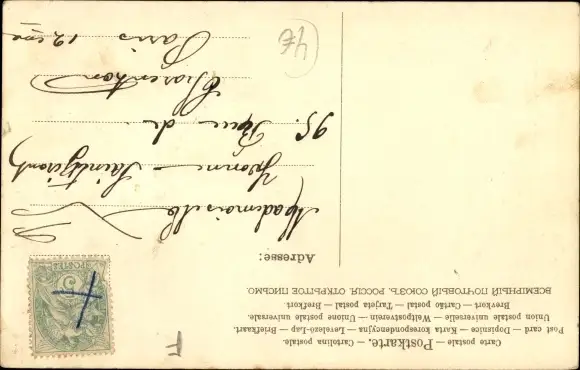 Carte postale. — Postkarte. — Cartolina postale.
Post card — Dopisnice — Karta korespondencyjna — Levelezö-Lap — Briefkaart.
Union postale universelle — Weltpostverein — Unione postale universale.
Brevkort — Cartão postal — Tarjeta postal — Brefkort.
ВСЕМІРНЫЙ ПОЧТОВЫЙ СОЮЗЪ. РОССІЯ. ОТКРЫТОЕ ПИСЬМО.
Adresse:
Mademoiselle
Yvonne
95. Rue de
Charenton
Paris 12ème
POSTES
5
T